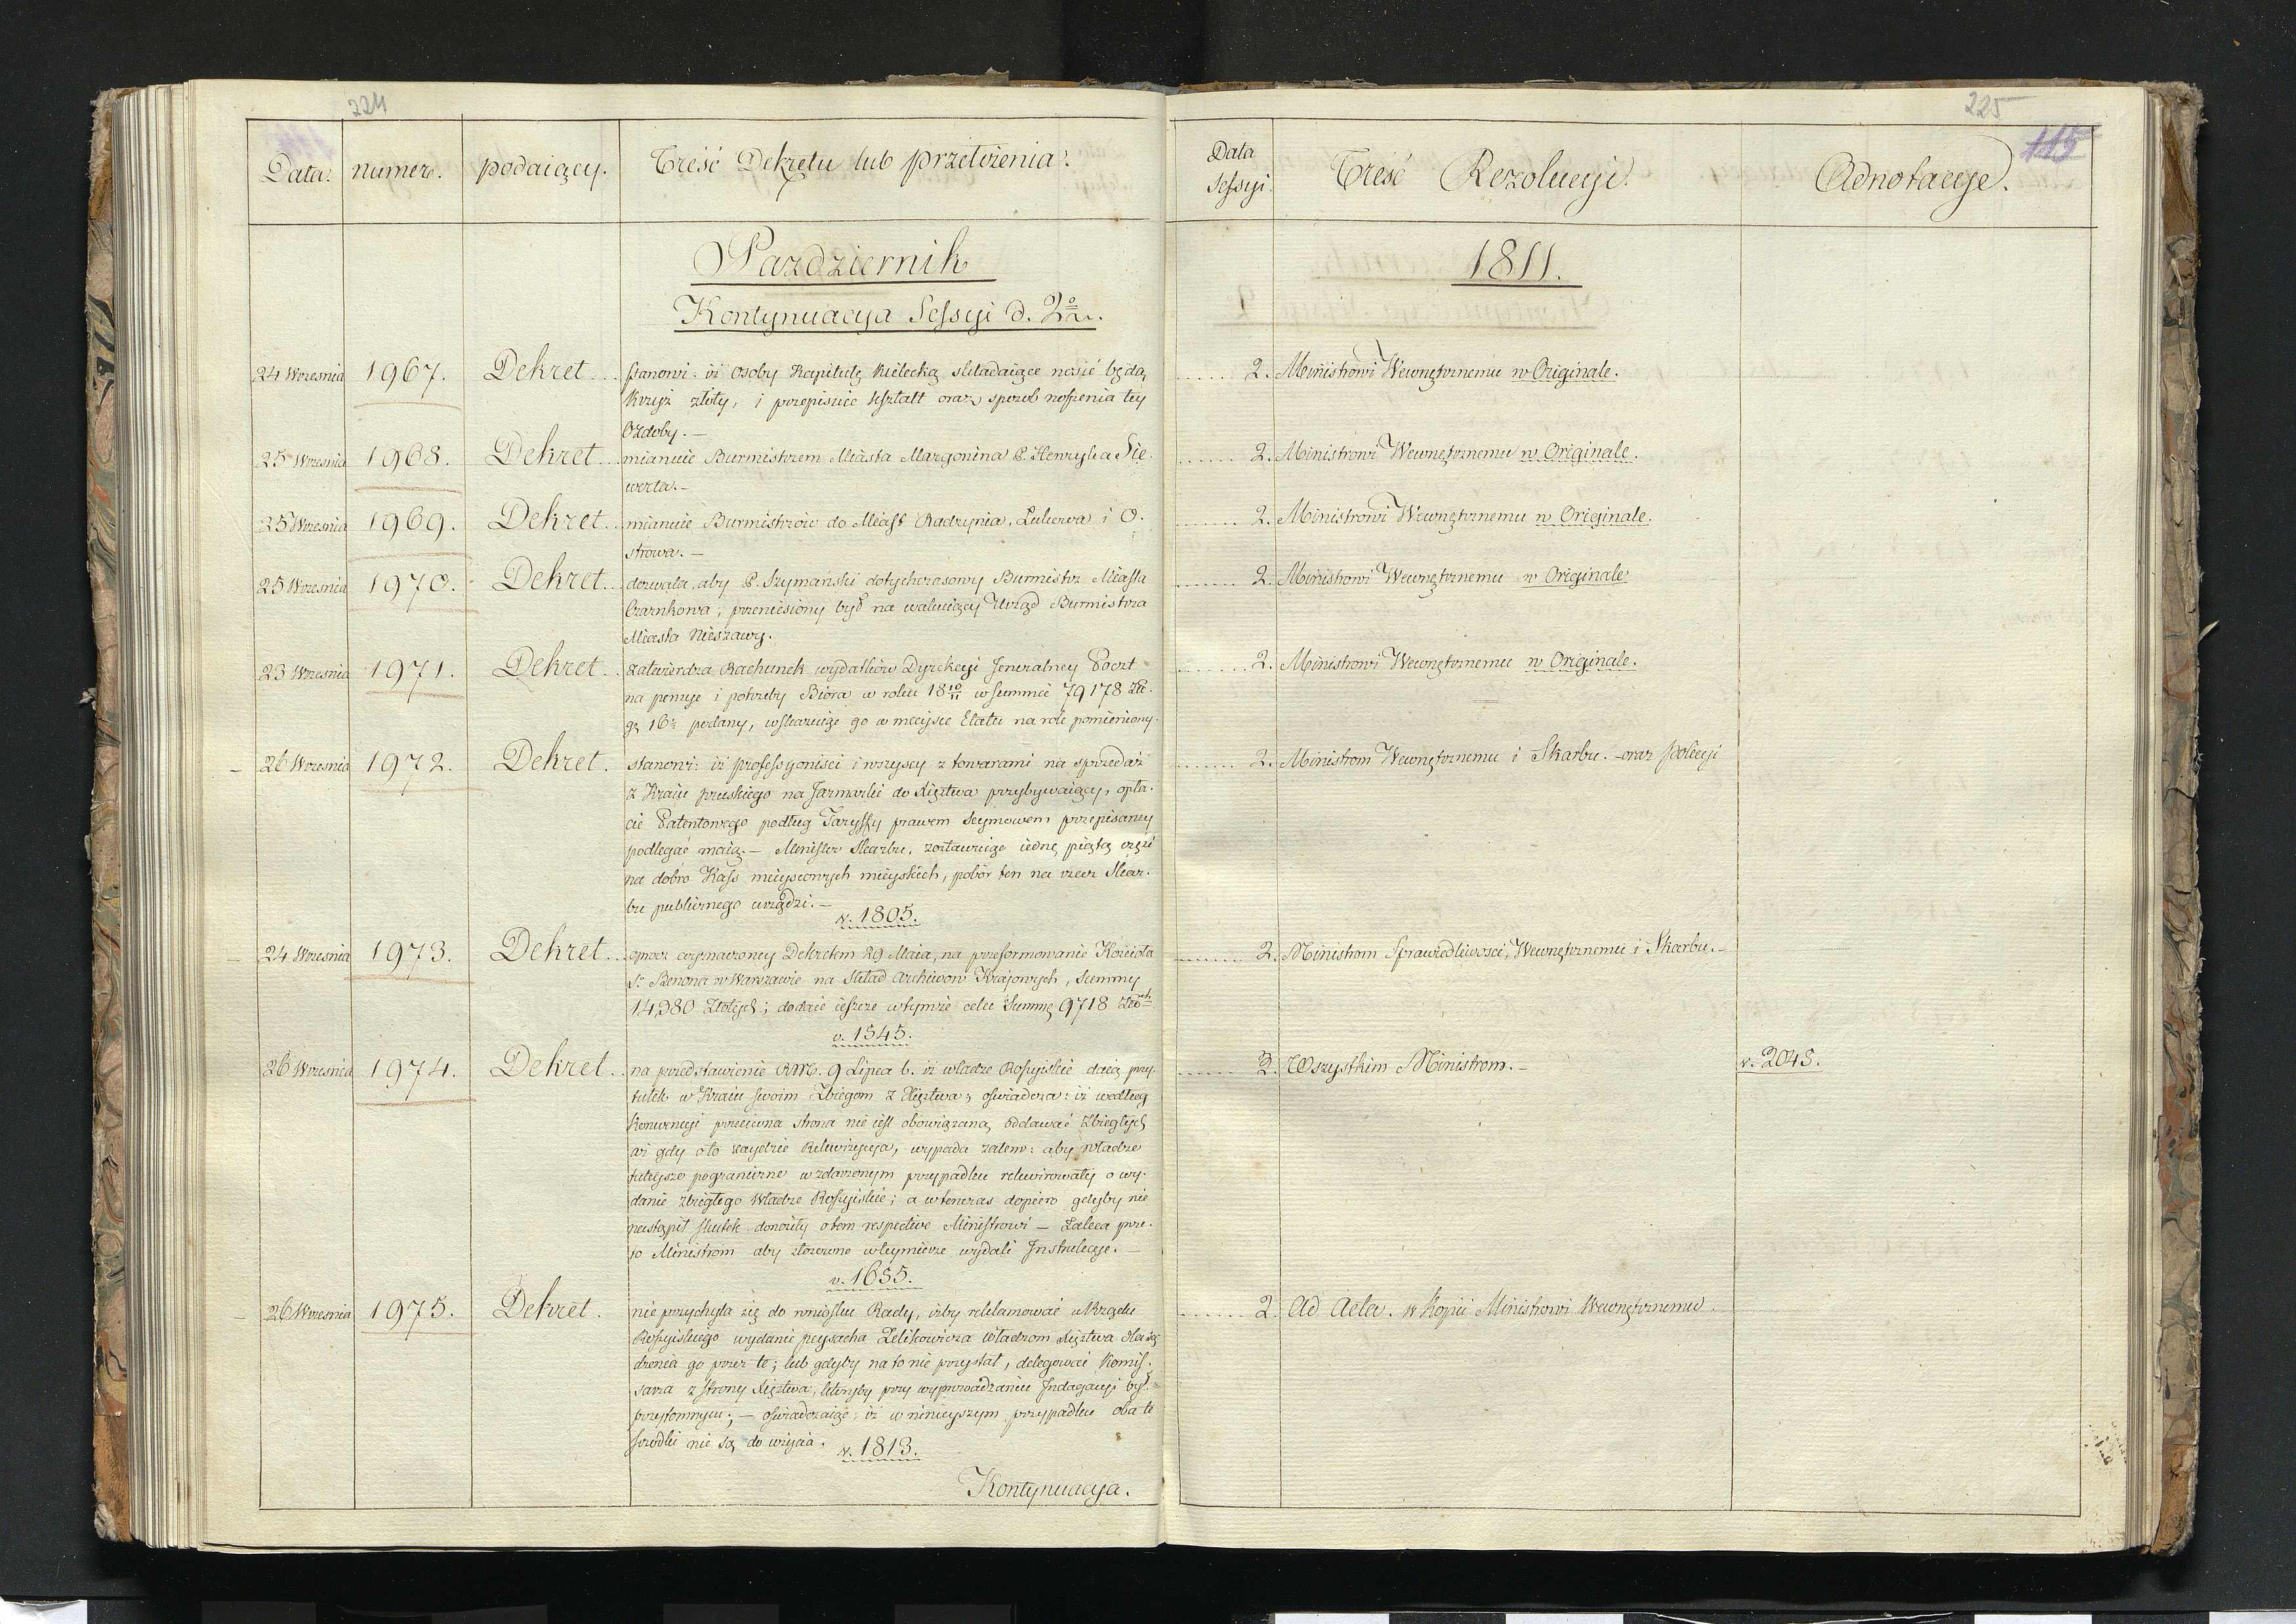 224
Data. numer. podaiący. Treść Dekretu lub przełożenia.
Pazdziernik
Kontynuacya Sessyi d. 2º
24 Wrzesnia 1967. Dekret stanowi: iż Osoby Kapitułę Kielecką składaiące nosić będą
Krzyż złoty, i przepisuie kształt oraz sposob noszenia tey
Ozdoby. —
25 Wrzesnia 1968. Dekret mianuie Burmistrzem Miasta Margonina P. Henryka Sie-
werta. —
25 Wrzesnia 1969. Dekret mianuie Burmistrzów do Miast Radzynia, Łukowa i O-
strowa. —
25 Wrzesnia 1970. Dekret dozwala, aby P. Szymański dotychczasowy Burmistrz Miasta
Czarnkowa, przeniesiony był na wakuiący Urząd Burmistrza
Miasta Nieszawy.
23 Wrzesnia 1971. Dekret zatwierdza Rachunek wydatków Dyrekcyi Jeneralney Poczt
na pensye i potrzeby Biora w roku 18 10/11 w summie 79178 Złł.
gr. 16 podany, wskazuiąc go w mieysce Etatu na rok pomieniony.
26 Wrzesnia 1972. Dekret. stanowi: iż professyonisci i wszyscy z towarami na sprzedaż
z Kraiu pruskiego na Jarmarki do Xięztwa przybywaiący, opła-
cie Patentowego podług Taryffy prawem Seymowem przepisaney
podlegać maią. — Minister Skarbu, zostawuiąc iedną piątą część
na dobro Kass mieyscowych mieyskich, pobór ten na rzecz Skar-
bu publicznego urządzi. —
v. 1805.
24 Wrzesnia 1973. Dekret oprocz wyznaczoney Dekretem 29 Maia, na przeformowanie Kościoła
S. Benona w Warszawie na Skład Archiwow Krajowych, Summy
14,380 Złotych; dodaie ieszcze w tymże celu Summę 9718 Złotych
v. 1545.
26 Wrzesnia 1974. Dekret na przedstawienie RM. 9 Lipca b. iż władze Rossyiskie daią przy-
tułek w Kraiu swoim Zbiegom z Xięztwa; oświadcza: iż według
Konwencyi przeciwna strona nie iest obowiązaną oddawać Zbiegłych
aż gdy o to zaydzie Rekwizycya, wypada zatem: aby Władze
tuteysze pograniczne w zdarzonym przypadku rekwirowały o wy-
danie zbiegłego Władze Rossyiskie; a wtenczas dopiero gdyby nie
nastąpił skutek donosiły o tem respective Ministrowi — Zaleca prze-
to Ministrom aby stosowne w teymierze wydali Instrukcye. —
v. 1655.
26 Wrzesnia 1975. Dekret. nie przychyla się do wniosku Rady, iżby reklamować u Rządu
Rossyiskiego wydanie Peysacha Zelikowicza Władzom Xięztwa dla są-
dzenia go przez te; lub gdyby na to nie przystał, delegować Komis-
sarza z strony Xięztwa, któryby przy wyprowadzaniu Indagacyi był
przytomnym; — oświadczaiąc: iż w ninieyszym przypadku oba te
srodki nie są do użycia.
v. 1813.
Kontynuacya.
225
115
Data Sessyi. Treść Rezolucyi. Adnotacye.
1811.
2. Ministrowi Wewnętrznemu w Originale.
2. Ministrowi Wewnętrznemu w Originale.
2. Ministrowi Wewnętrznemu w Originale.
2. Ministrowi Wewnętrznemu w Originale
2. Ministrowi Wewnętrznemu w Originale.
2. Ministrom Wewnętrznemu i Skarbu. – oraz Policyi
2. Ministrom Sprawiedliwosci, Wewnętrznemu i Skarbu. –
2. Wszystkim Ministrom. – v. 2045.
2. Ad Acta. w Kopii Ministrowi Wewnętrznemu.